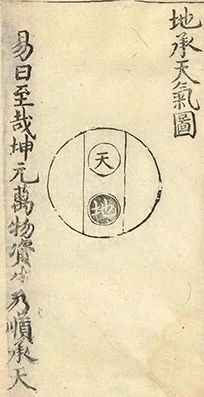 地承天氣圖
天
地
易曰至哉坤元萬物資生乃順承天